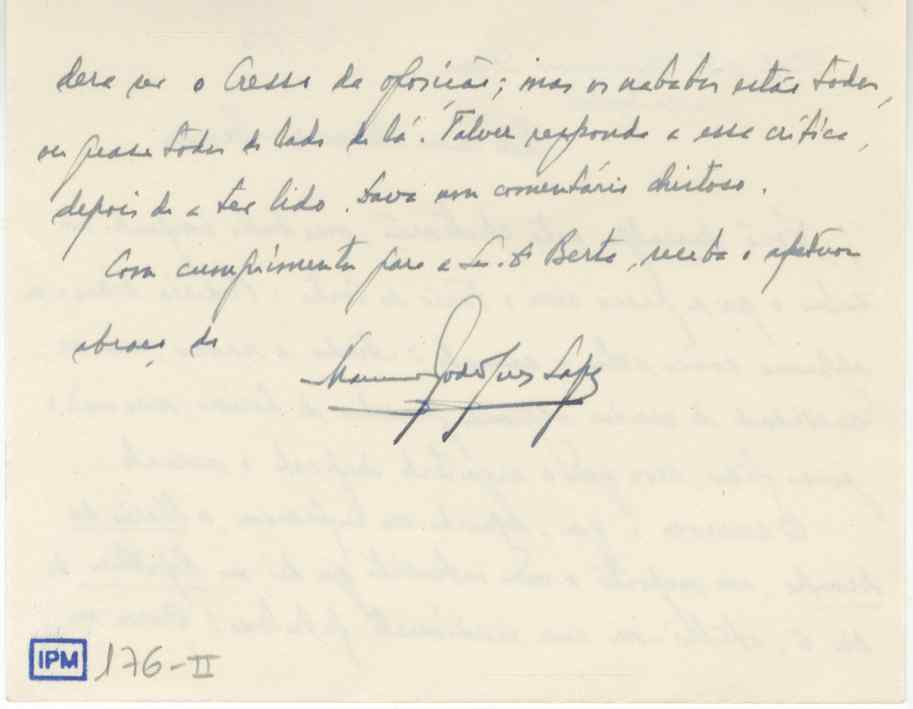 dera ser o Cresso da oposição; mas os nababos estão todos,
ou quase todos do lado de lá. Talvez responda a essa crítica,
depois de a ter lido. Dava um comentário chistoso.
Com cumprimentos para a Sr.ª D. Berta, receba o afetuoso
abraço de
Rodrigues Lapa
IPM 176-II